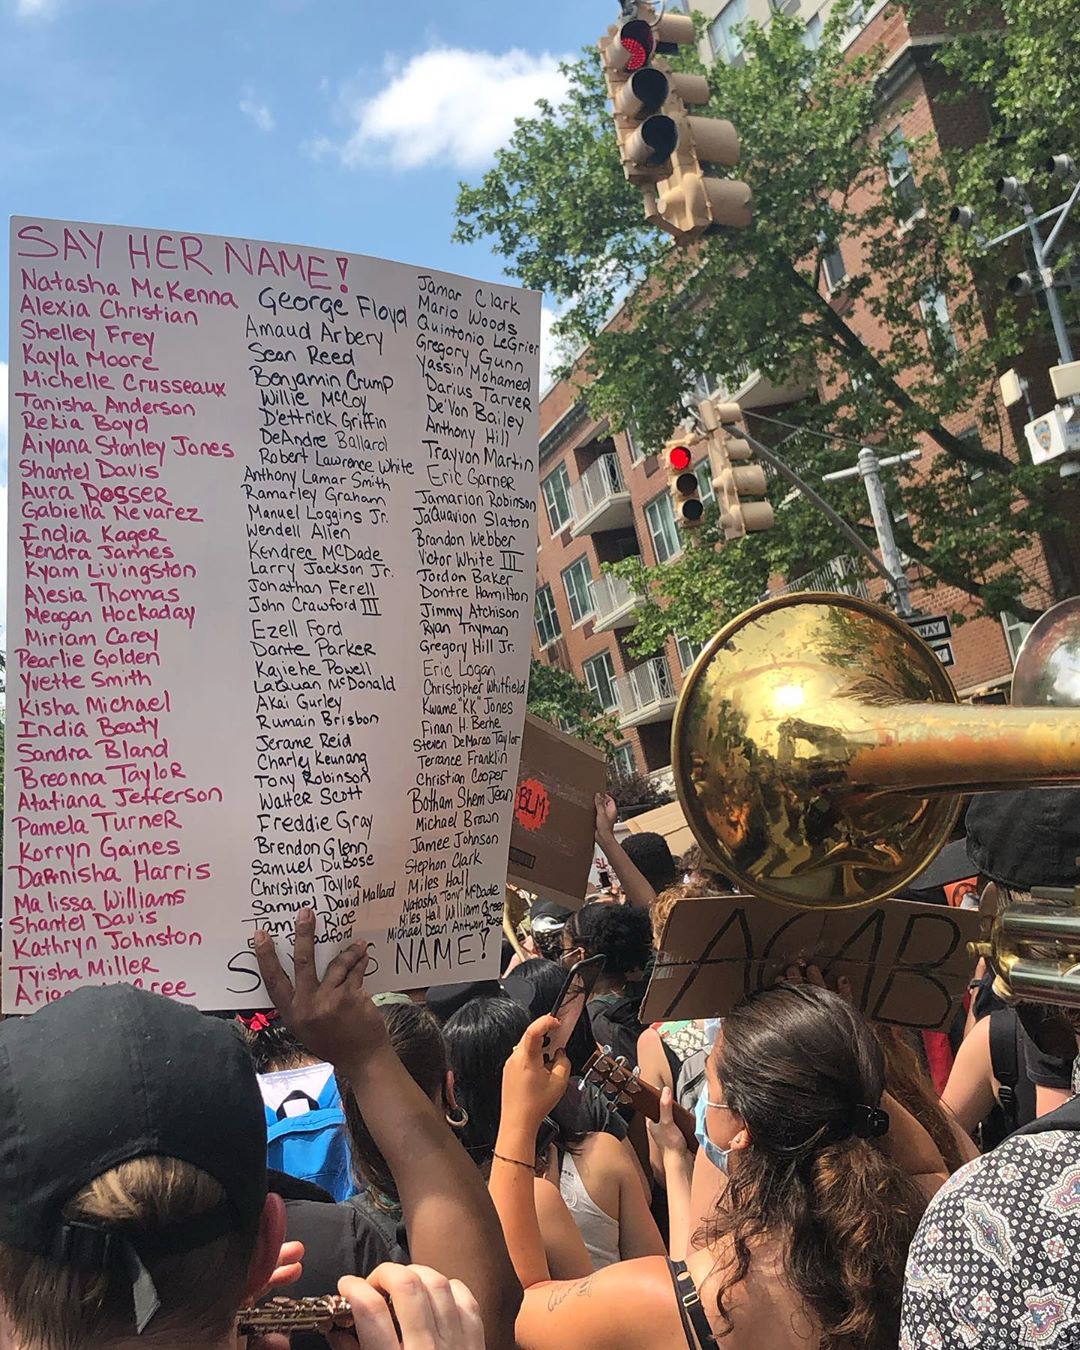 SAY HER NAME!
Natasha McKenna
Alexia Christian
Shelley Frey
Kayla Moore
Michelle Crusseaux
Tanisha Anderson
Rekia Boyd
Aiyana Stanley Jones
Shantel Davis
Aura Rosser
Gabiella Nevarez
India Kager
Kendra James
Kyam Livingston
Alesia Thomas
Meagan Hockaday
Miriam Carey
Pearlie Golden
Yvette Smith
Kisha Michael
India Beaty
Sandra Bland
Breonna Taylor
Atatiana Jefferson
Pamela Turner
Korryn Gaines
Darnisha Harris
Malissa Williams
Shantel Davis
Kathryn Johnston
Tyisha Miller
George Floyd
Amaud Arbery
Sean Reed
Benjamin Crump
Willie McCoy
D'ettrick Griffin
DeAndre Ballard
Robert Lawrence White
Anthony Lamar Smith
Ramarley Graham
Manuel Loggins Jr.
Wendell Allen
Kendrec McDade
Larry Jackson Jr.
Jonathan Ferell
John Crawford III
Ezell Ford
Dante Parker
Kajiehe Powell
LaQuan McDonald
Akai Gurley
Rumain Brisbon
Jerame Reid
Charley Keunang
Tony Robinson
Walter Scott
Freddie Gray
Brendon Glenn
Samuel DuBose
Christian Taylor
Samuel David Mallard
Rice
NAME!
Jamar Clark
Mario Woods
Quintonio LeGrier
Gregory Gunn
Yassin Mohamed
Darius Tarver
De'Von Bailey
Anthony Hill
Trayvon Martin
Eric Garner
Jamarion Robinson
Ja'Quavion Slaton
Brandon Webber
Victor White III
Jordon Baker
Dontre Hamilton
Jimmy Atchison
Ryan Twyman
Gregory Hill Jr.
Eric Logan
Christopher Whitfield
Kwame "KK" Jones
Finan H. Berhe
Steven DeMarco Taylor
Terrance Franklin
Christian Cooper
Botham Shem Jean
Michael Brown
Jamee Johnson
Stephon Clark
Miles Hall
Natasha Tony McDade
Miles Hall William Green
Michael Dean Antwon Rose
BLM
ACAB
WAY